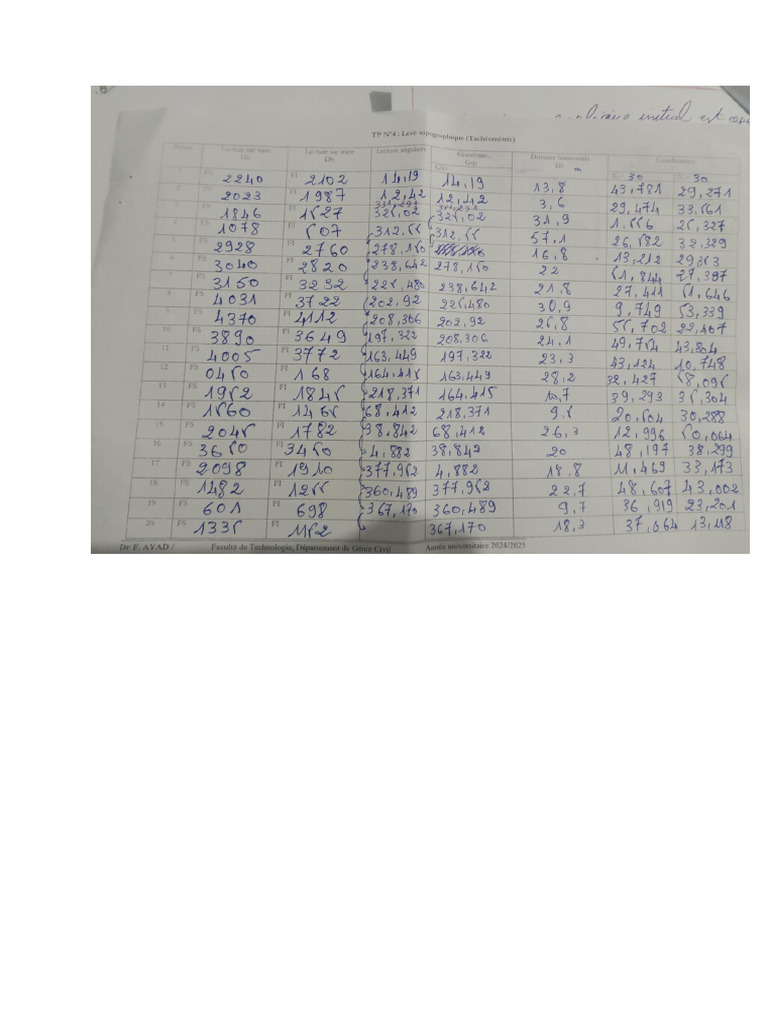 initial est
TP N°4 : Levé topographique (Tachéométrie)
Points Lecture sur mire Dh Lecture sur mire Dh Lecture angulaire Gisements Gsp Distance horizontale Dh m Coordonnées
30 30
2240 FI 2102 14,19 14,19 13,8 43,781 29,271
2 2023 FI 1987 12,42 12,42 3,6 29,474 33,561
1846 FI 1527 325,02 325,02 31,9 1,556 25,327
4 1078 507 312,55 312,55 57,1 26,582 32,329
5 2928 FI 2760 278,150 16,8 13,212 29,353
6 FS 3040 FI 2820 238,642 278,150 22 51,844 27,397
7 FS 3150 FI 3232 225,480 238,642 21,8 27,411 51,646
8 FS 4031 FI 3722 202,92 225,480 30,9 9,749 53,339
9 FS 4370 FI 4112 208,306 202,92 25,8 55,702 22,407
10 FS 3890 FI 3649 197,322 208,306 24,1 49,754 43,804
11 FS 4005 FI 3772 163,449 197,322 23,3 43,124 10,748
12 FS 0450 FI 168 164,415 163,449 28,2 32,427 58,095
13 FS 1952 FI 1845 218,371 164,415 10,7 39,293 35,304
14 FS 1560 FI 1465 68,412 218,371 9,5 20,504 30,288
15 FS 2045 FI 1782 38,842 68,412 26,3 12,996 50,064
16 FS 3650 FI 3450 4,882 38,842 20 48,197 38,299
17 FS 2098 FI 1910 377,952 4,882 18,8 11,469 33,173
18 FS 1482 FI 1255 360,489 377,952 22,7 48,607 43,002
19 FS 601 FI 698 367,170 360,489 9,7 36,919 23,201
20 FS 1335 FI 1152 367,170 18,3 37,064 13,118
Dr F. AYAD / Faculté de Technologie, Département de Génie Civil Année universitaire 2024/2025